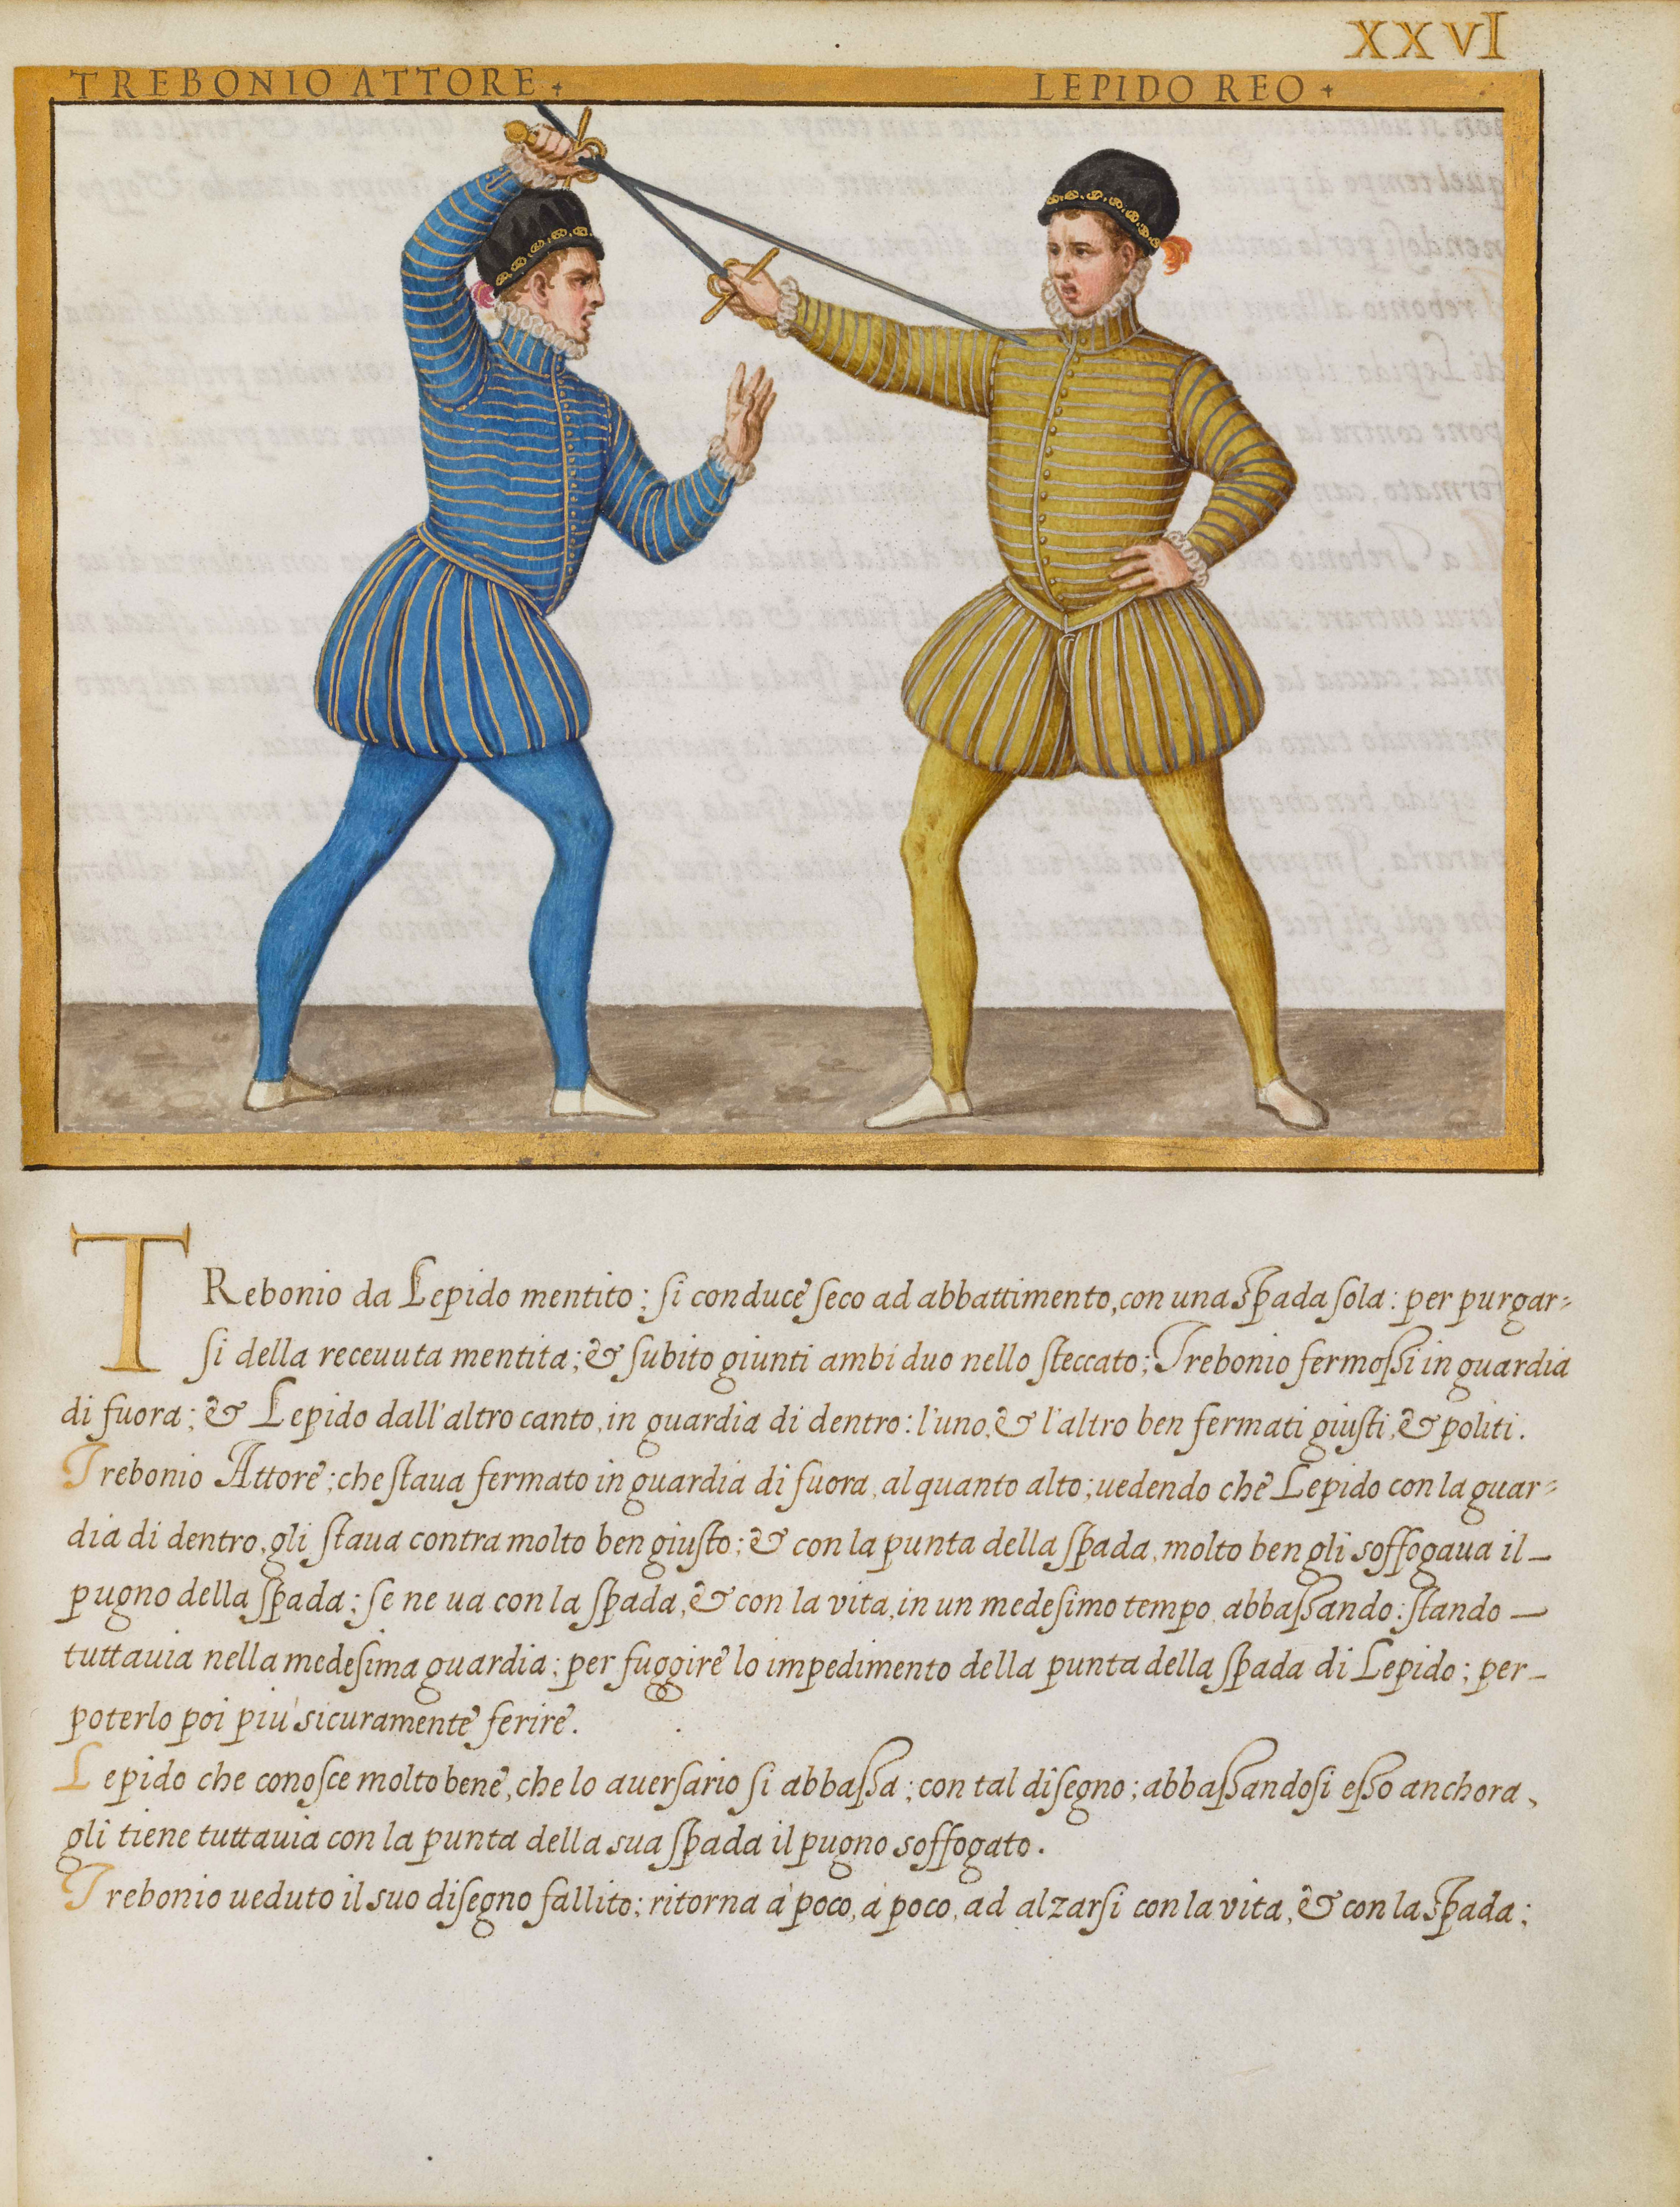 XXVI
TREBONIO ATTORE + LEPIDO REO +
TRebonio da Lepido mentito; si conduce seco ad abbattimento, con una spada sola: per purgar=
si della receuuta mentita; & subito giunti ambi duo nello steccato; Trebonio fermossi in guardia
di fuora; & Lepido dall'altro canto, in guardia di dentro: l'uno, & l'altro ben fermati giusti, & politi.
Trebonio Attore; che staua fermato in guardia di fuora, alquanto alto; uedendo che Lepido con la guar=
dia di dentro, gli staua contra molto ben giusto; & con la punta della spada, molto ben gli soffogaua il_
pugno della spada; se ne ua con la spada, & con la vita, in un medesimo tempo abbassando: stando —
tuttauia nella medesima guardia; per fuggire lo impedimento della punta della spada di Lepido; per_
poterlo poi più sicuramente ferire.
Lepido che conosce molto bene, che lo auersario si abbassa; con tal disegno; abbassandosi esso anchora,
gli tiene tuttauia con la punta della sua spada il pugno soffogato.
Trebonio ueduto il suo disegno fallito; ritorna à poco, à poco, ad alzarsi con la vita, & con la spada;